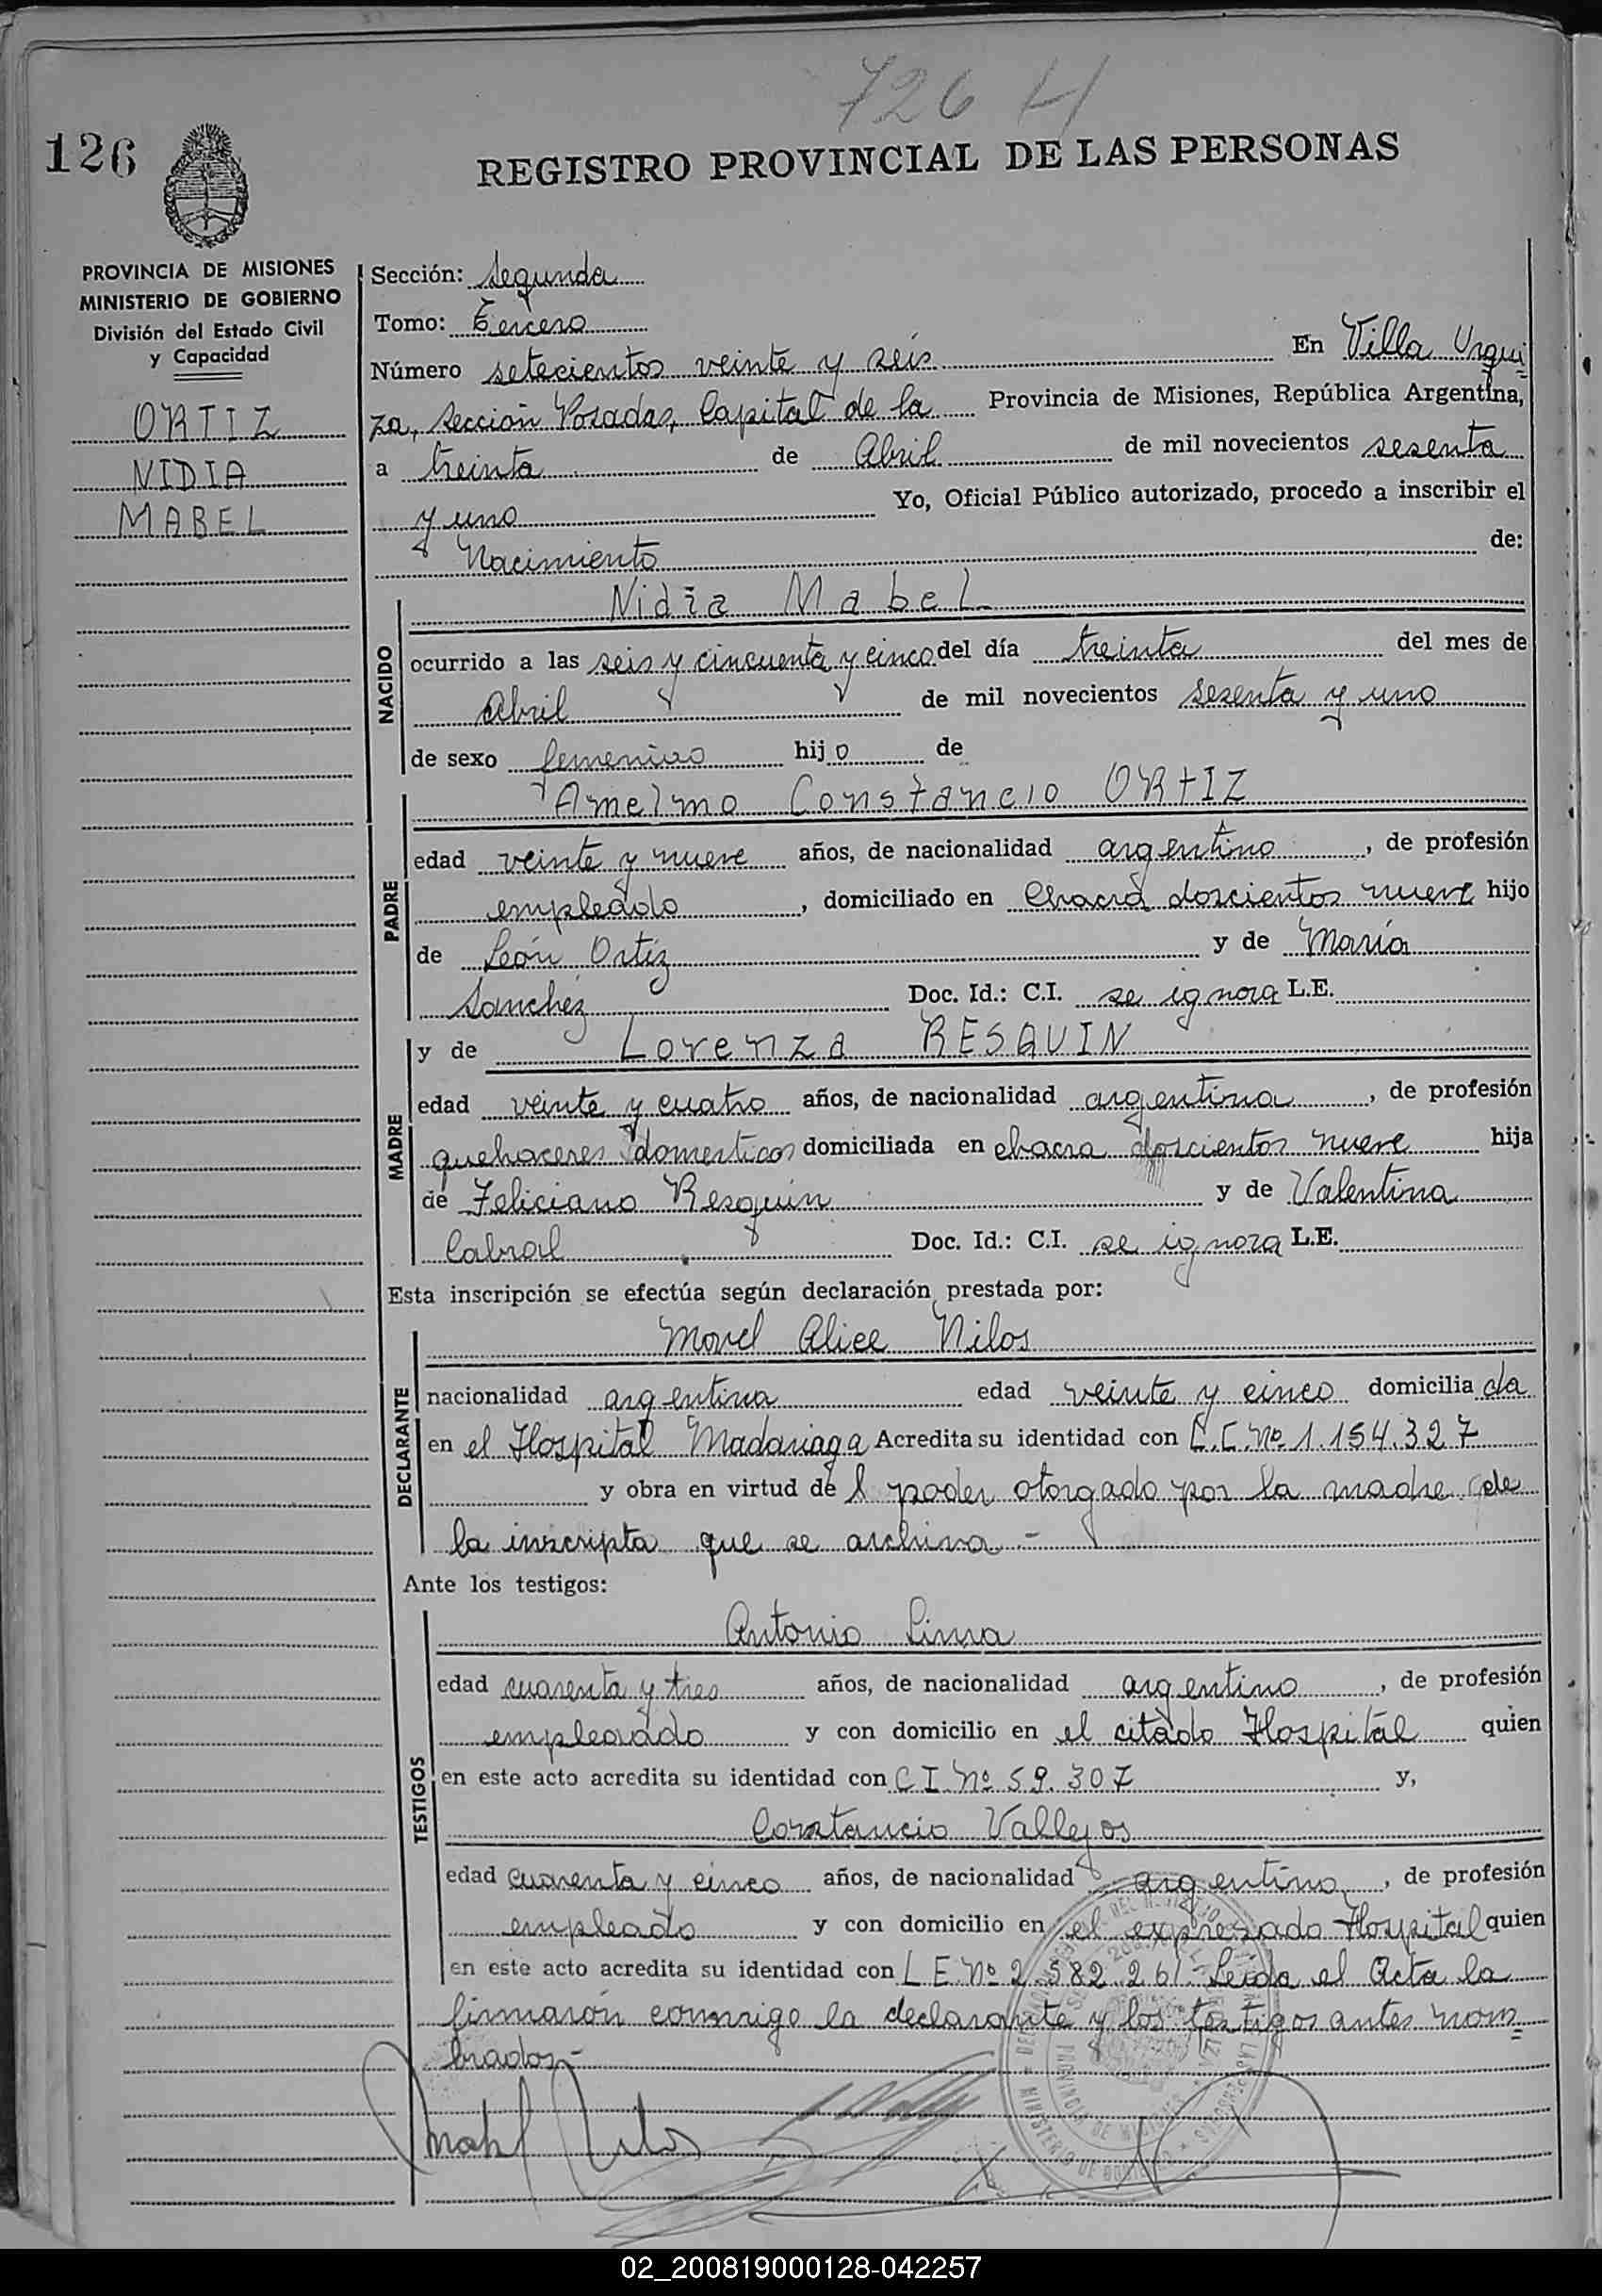 726 H
126
REGISTRO PROVINCIAL DE LAS PERSONAS
PROVINCIA DE MISIONES
MINISTERIO DE GOBIERNO
División del Estado Civil
y Capacidad
ORTIZ
NIDIA
MABEL
Sección: Segunda
Tomo: Tercero
Número setecientos veinte y seis En Villa Urqui=
za, Sección Posadas, Capital de la Provincia de Misiones, República Argentina,
a treinta de Abril de mil novecientos sesenta
y uno Yo, Oficial Público autorizado, procedo a inscribir el
Nacimiento de:
NACIDO
Nidia Mabel
ocurrido a las seis y cincuenta y cinco del día treinta del mes de
Abril de mil novecientos sesenta y uno
de sexo femenino hijo de
PADRE
Amelmo Constancio ORTIZ
edad veinte y nueve años, de nacionalidad argentino, de profesión
empleado, domiciliado en Chacra doscientos nueve hijo
de León Ortiz y de María
Sanchez Doc. Id.: C.I. se ignora L.E.
MADRE
y de Lorenza RESQUIN
edad veinte y cuatro años, de nacionalidad argentina, de profesión
quehaceres domesticos domiciliada en chacra doscientos nueve hija
de Feliciano Resquin y de Valentina
Cabral Doc. Id.: C.I. se ignora L.E.
Esta inscripción se efectúa según declaración prestada por:
DECLARANTE
Alice Nilos
nacionalidad argentina edad veinte y cinco domiciliada
en el Hospital Madariaga Acredita su identidad con C.C. Nº 1.154.327
y obra en virtud del poder otorgado por la madre de
la inscripta que se archiva.-
Ante los testigos:
TESTIGOS
Antonio Lima
edad cuarenta y tres años, de nacionalidad argentino, de profesión
empleado y con domicilio en el citado Hospital quien
en este acto acredita su identidad con C I Nº 59.307 y,
Constancio Vallejos
edad cuarenta y cinco años, de nacionalidad argentino, de profesión
empleado y con domicilio en el expresado Hospital quien
en este acto acredita su identidad con L E Nº 2.582.261. Leida el Acta la
firmarón conmigo la declarante y los testigos antes nom=
brados.-
02_200819000128-042257